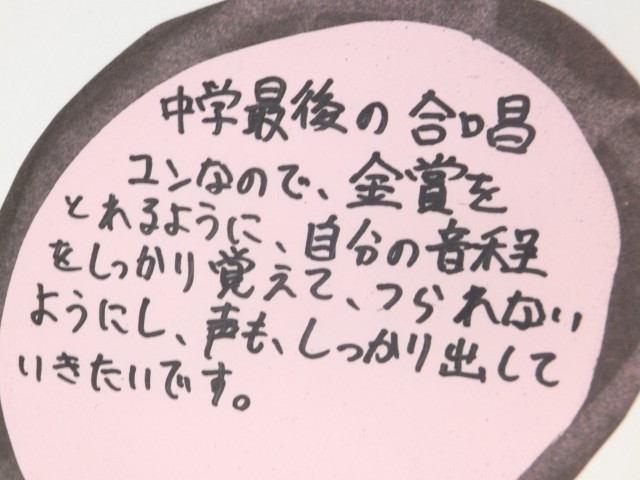 中学最後の合唱
コンなので、金賞を
とれるように、自分の音程
をしっかり覚えて、つられない
ようにし、声も、しっかり出して
いきたいです。